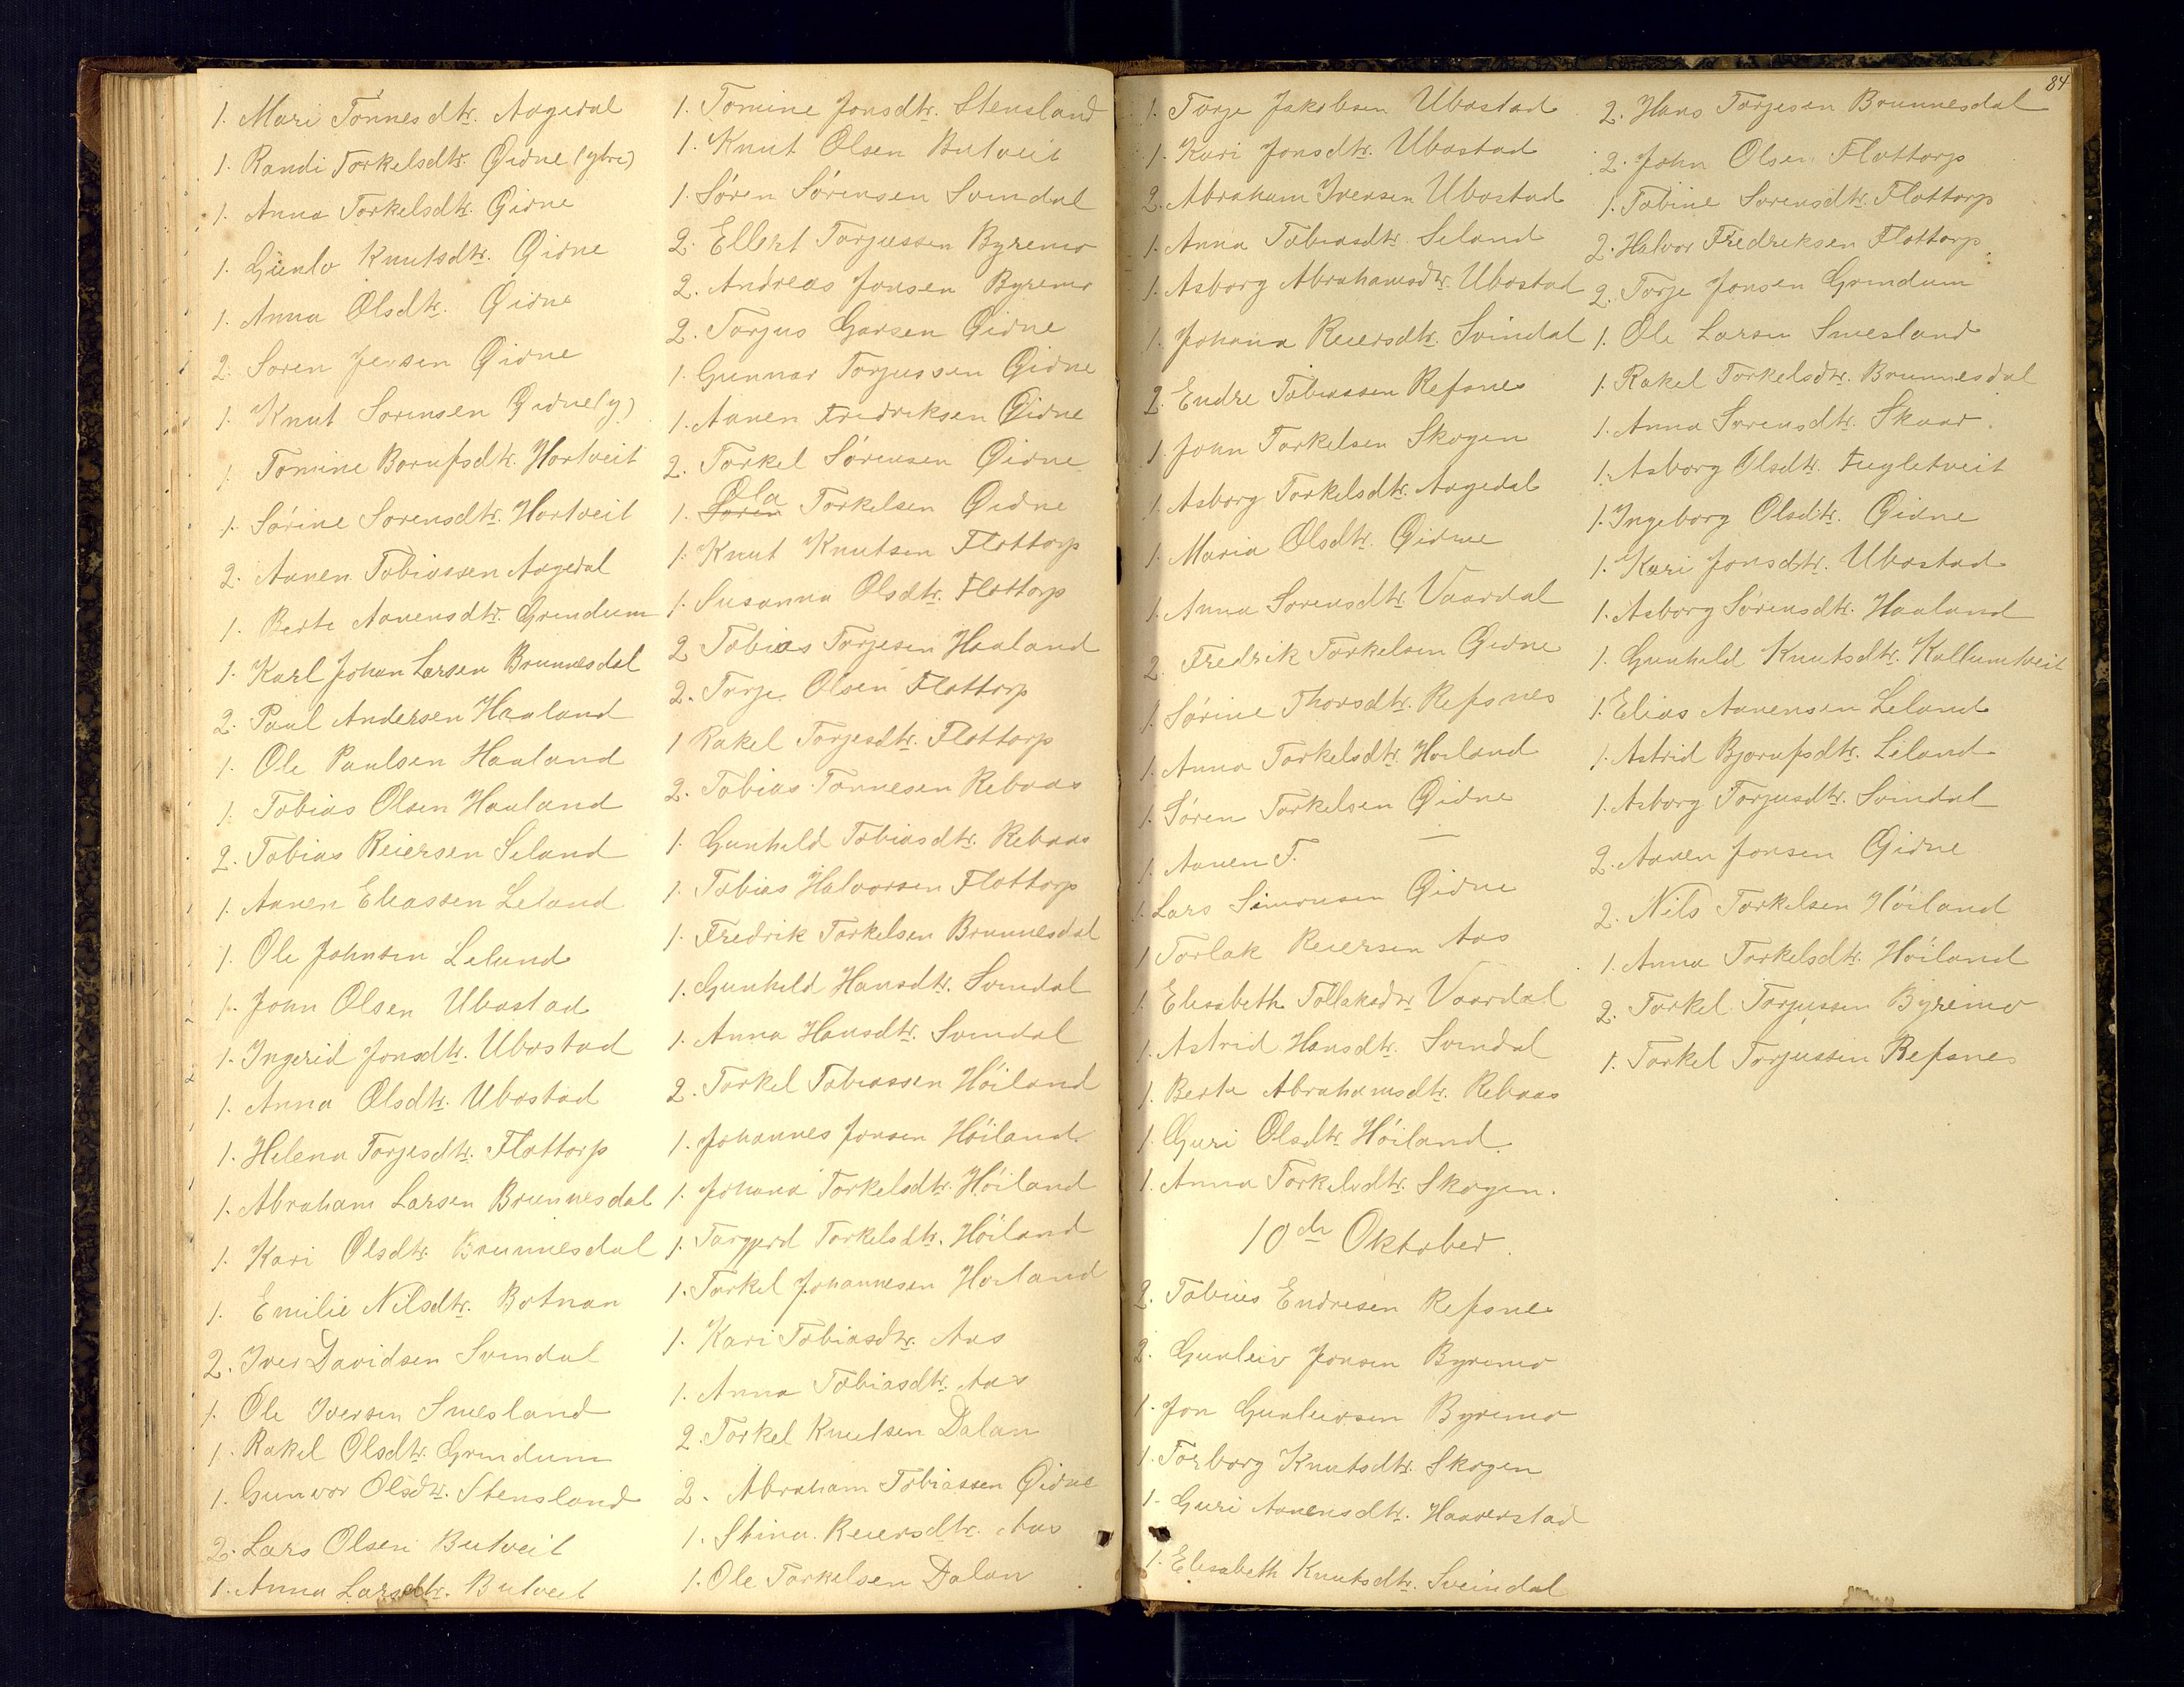 1. Mari Tönnesdtr. Aagedal
1. Randi Torkelsdtr. Öidne (ytre)
1. Anna Torkelsdtr. Öidne
1. Gunlo Knutsdtr. Öidne
1. Anna Olsdtr. Öidne
2. Soren Jensen Öidne
1. Knut Sorensen Öidne (y)
1. Tomine Borufsdtr. Hortveit
1. Sörine Sorensdtr. Hortveit
2. Aanen Tobiassen Aagedal
1. Berte Aanensdtr. Grendum
1. Karl Johan Larsen Brunnesdal
2. Paul Andersen Haaland
1. Ole Paulsen Haaland
1. Tobias Olsen Haaland
2. Tobias Reiersen Seland
1. Aanen Eleassen Leland
1. Ole Johnsen Leland
1. John Olsen Ubostad
1. Ingerid Jonsdtr. Ubostad
1. Anna Olsdtr. Ubostad
1. Helena Torjesdtr. Flottorp
1. Abraham Larsen Brunnesdal
1. Kari Olsdtr. Brunnesdal
1. Emilie Nilsdtr. Botnan
2. Iver Davidsen Svindal
1. Ole Iversen Smesland
1. Rakel Olsdtr. Grendum
1. Gunvor Olsdtr. Stensland
2. Lars Olsen Butveit
1. Anna Larsdtr. Butveit
1. Tomine Jonsdtr. Stensland
1. Knut Olsen Butveit
1. Sören Sörensen Svindal
2. Ellert Torjussen Byremo
2. Andreas Jonsen Byremo
2. Torjus Garsen Öidne
1. Gunnar Torjussen Öidne
1. Aanen Fredriksen Öidne
2. Torkel Sörensen Öidne
Ola
1. Soren Torkelsen Öidne
1. Knut Knutsen Flottorp
1. Susanna Olsdtr. Flottorp
2 Tobias Torjesen Haaland
2. Torje Olsen Flottorp
1 Rakel Torjesdtr. Flottorp
2. Tobias Tonnesen Rebaas
1. Gunhild Tobiasdtr. Rebaas
1. Tobias Halvorsen Flottorp
1. Fredrik Torkelsen Brunnesdal
1. Gunhild Hansdtr. Svindal
1. Anna Hansdtr. Svindal
2. Torkel Tobiassen Höiland
1. Johannes Jonsen Höiland
1. Johana Torkelsdtr. Höiland
1. Torgjerd Torkelsdtr. Höiland
1. Torkel Johannesen Hoiland
1. Kari Tobiasdtr. Aas
1. Anna Tobiasdtr. Aas
2. Torkel Knutsen Dalan
2. Abraham Tobiassen Öidne
1. Stina Reiersdtr. Aas
1. Ole Torkelsen Dalan
84
1. Torje Jakobsen Ubostad
1. Kari Jonsdtr. Ubostad
2. Abraham Iversen Ubostad
1. Anna Tobiasdtr. Seland
1. Asborg Abrahamsdtr. Ubostad
1. Johana Reiersdtr. Svindal
2. Endre Tobiassen Refsnes
1. John Torkelsen Skogen
1. Asborg Torkelsdtr. Aagedal
1. Maria Olsdtr. Öidne
1. Anna Sorensdtr. Vaardal
2. Fredrik Torkelsen Öidne
1. Sörine Thorsdtr. Refsnes
1. Anna Torkelsdtr. Hoiland
1. Sören Torkelsen Öidne
1. Aanen T. —
1. Lars Simonsen Öidne
1 Torlak Reiersen Aas
1. Elisabeth Tollaksdtr Vaardal
1. Astrid Hansdtr. Svindal
1. Berte Abrahamsdtr. Rebaas
1. Guri Olsdtr Höiland.
1. Anna Torkelsdtr. Skogen.
10de Oktober.
2. Tobias Endresen Refsnes
2. Gunleiv Jonsen Byremo
1. Jon Gunleivsen Byremo
1. Torborg Knutsdtr. Skogen
1. Guri Aanensdtr. Haaverstad
1. Elisabeth Knutsdtr. Sveindal
2. Hans Torjesen Brunnesdal
2. John Olsen Flottorp
1. Tobine Sorensdtr. Flottorp
2. Halvor Fredriksen Flottorp.
2. Torje Jonsen Grendum
1. Ole Larsen Smesland
1. Rakel Torkelsdtr. Brunnesdal
1. Anna Sorensdtr. Skaar.
1. Asborg Olsdtr. Fugletveit
1. Ingeborg Olsdtr. Öidne
1. Kari Jonsdtr. Ubostad
1. Asborg Sörensdtr. Haaland
1. Gunhild Knutsdtr. Kollumtveit
1. Elias Aanensen Leland
1. Astrid Bjorufsdtr. Leland
1. Asborg Torjusdtr. Svindal
2. Aanen Jonsen Öidne
2. Nils Torkelsen Höiland
1. Anna Torkelsdtr. Höiland
2. Torkel Torjussen Byremo
1. Torkel Torjussen Refsnes